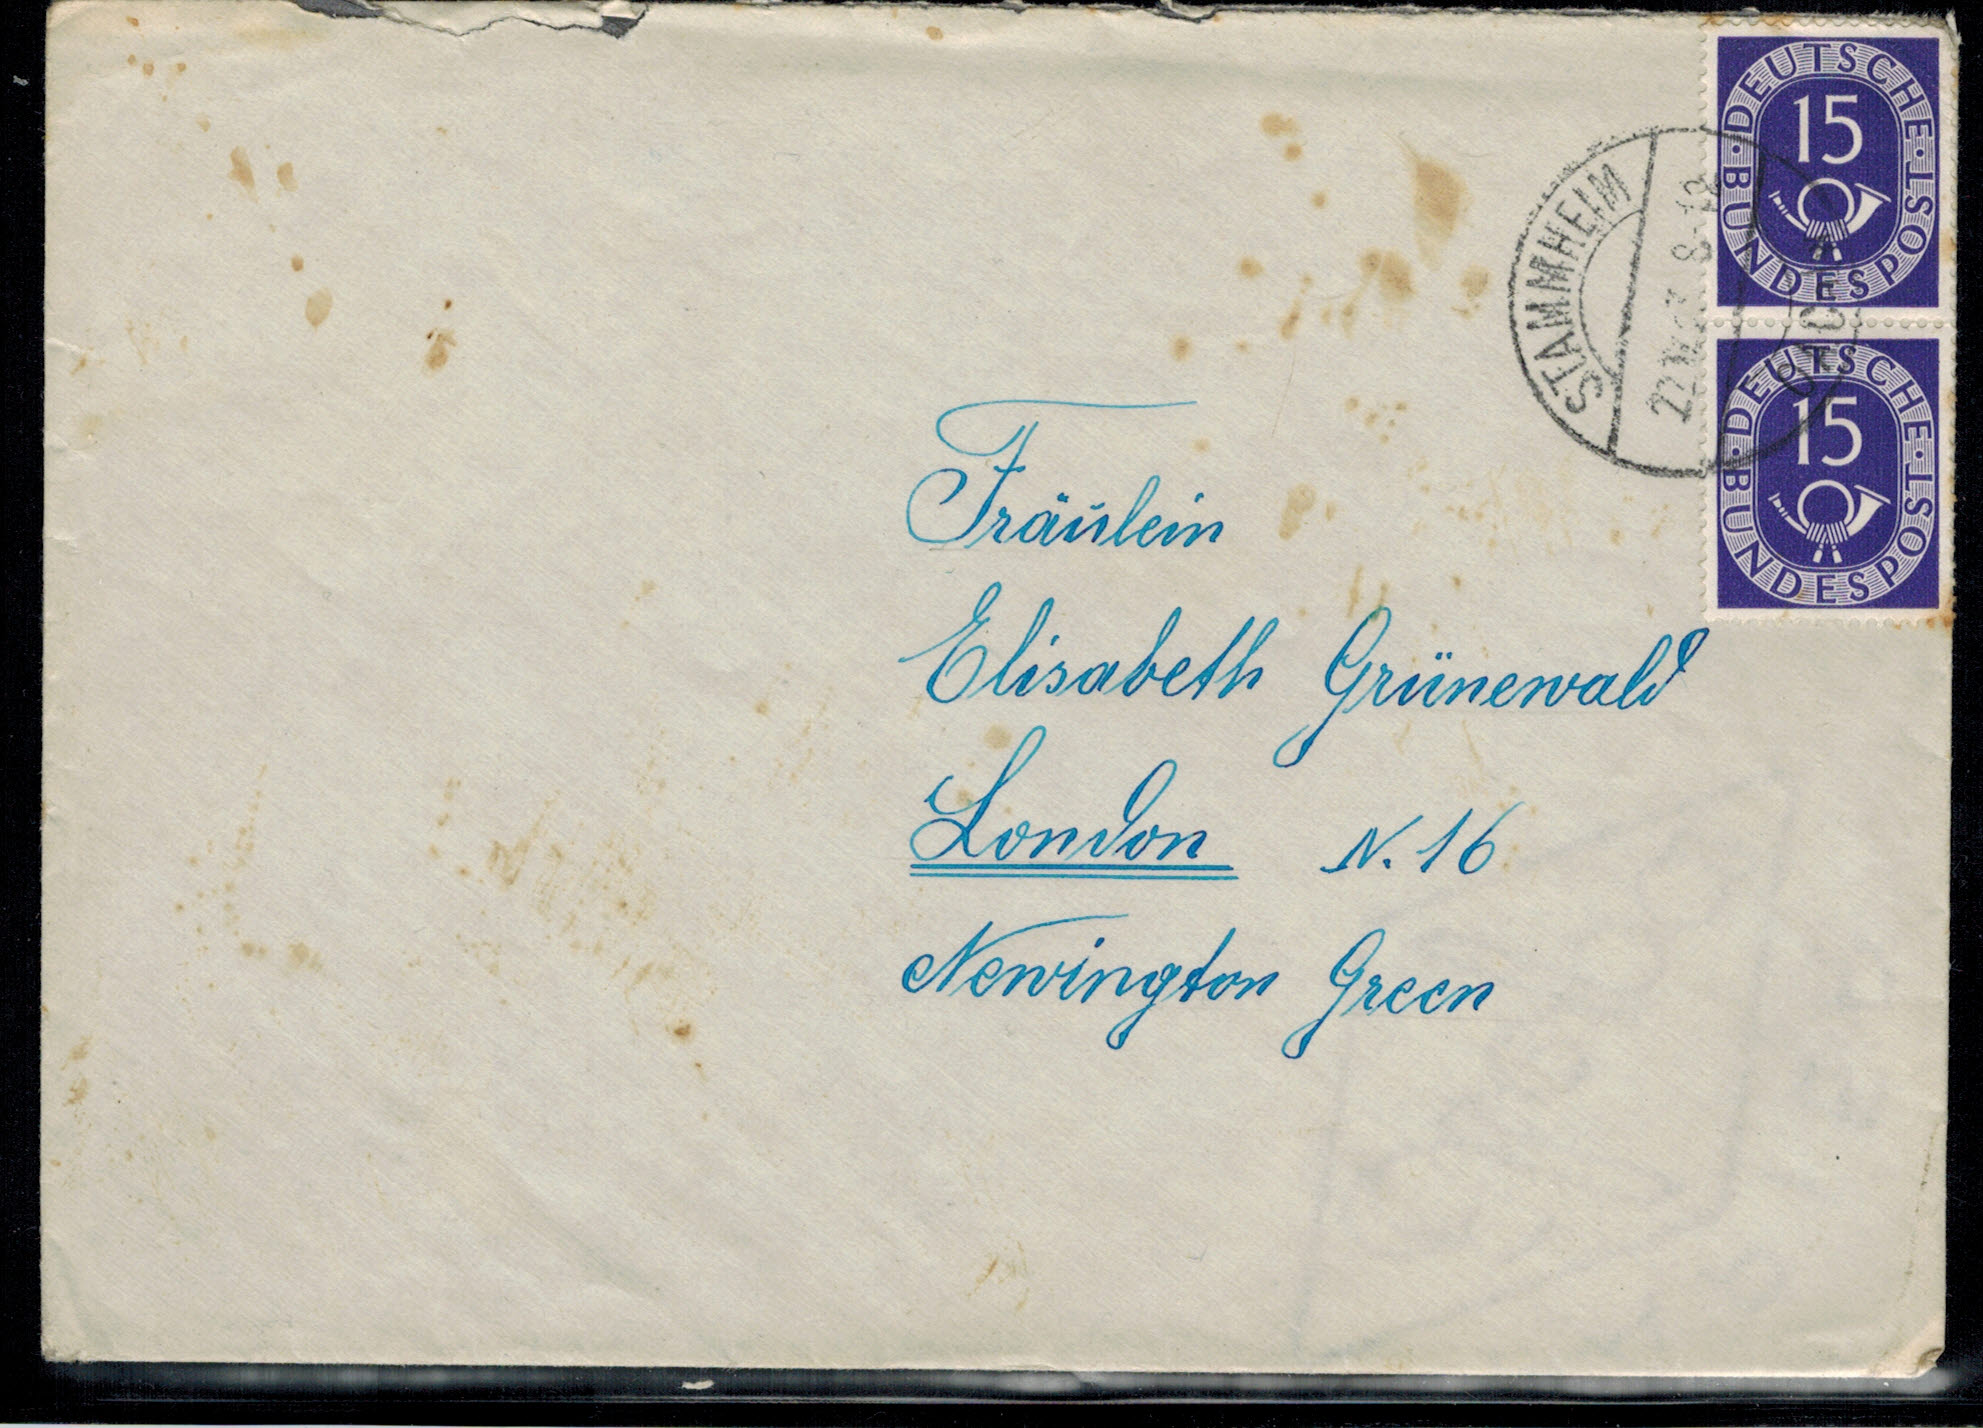 DEUTSCHE · BUNDESPOST
15
STAMMHEIM
DEUTSCHE · BUNDESPOST
15
Fräulein
Elisabeth Grünewald
London N. 16
Newington Green